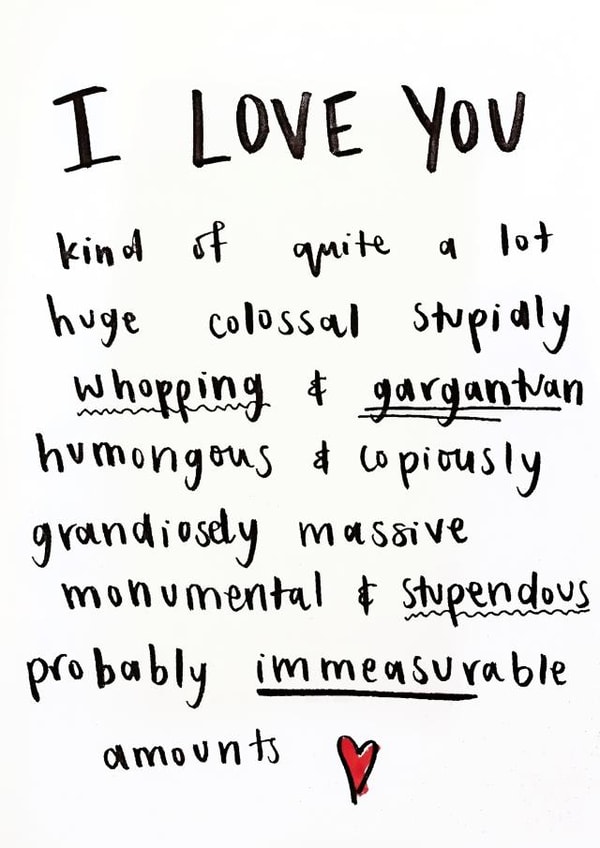 I LOVE YOU
kind of quite a lot
huge colossal stupidly
whopping & gargantuan
humongous & copiously
grandiosely massive
monumental & stupendous
probably immeasurable
amounts